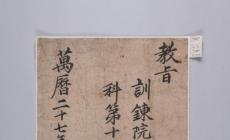 教旨
訓鍊院
科第十
萬曆二十七年